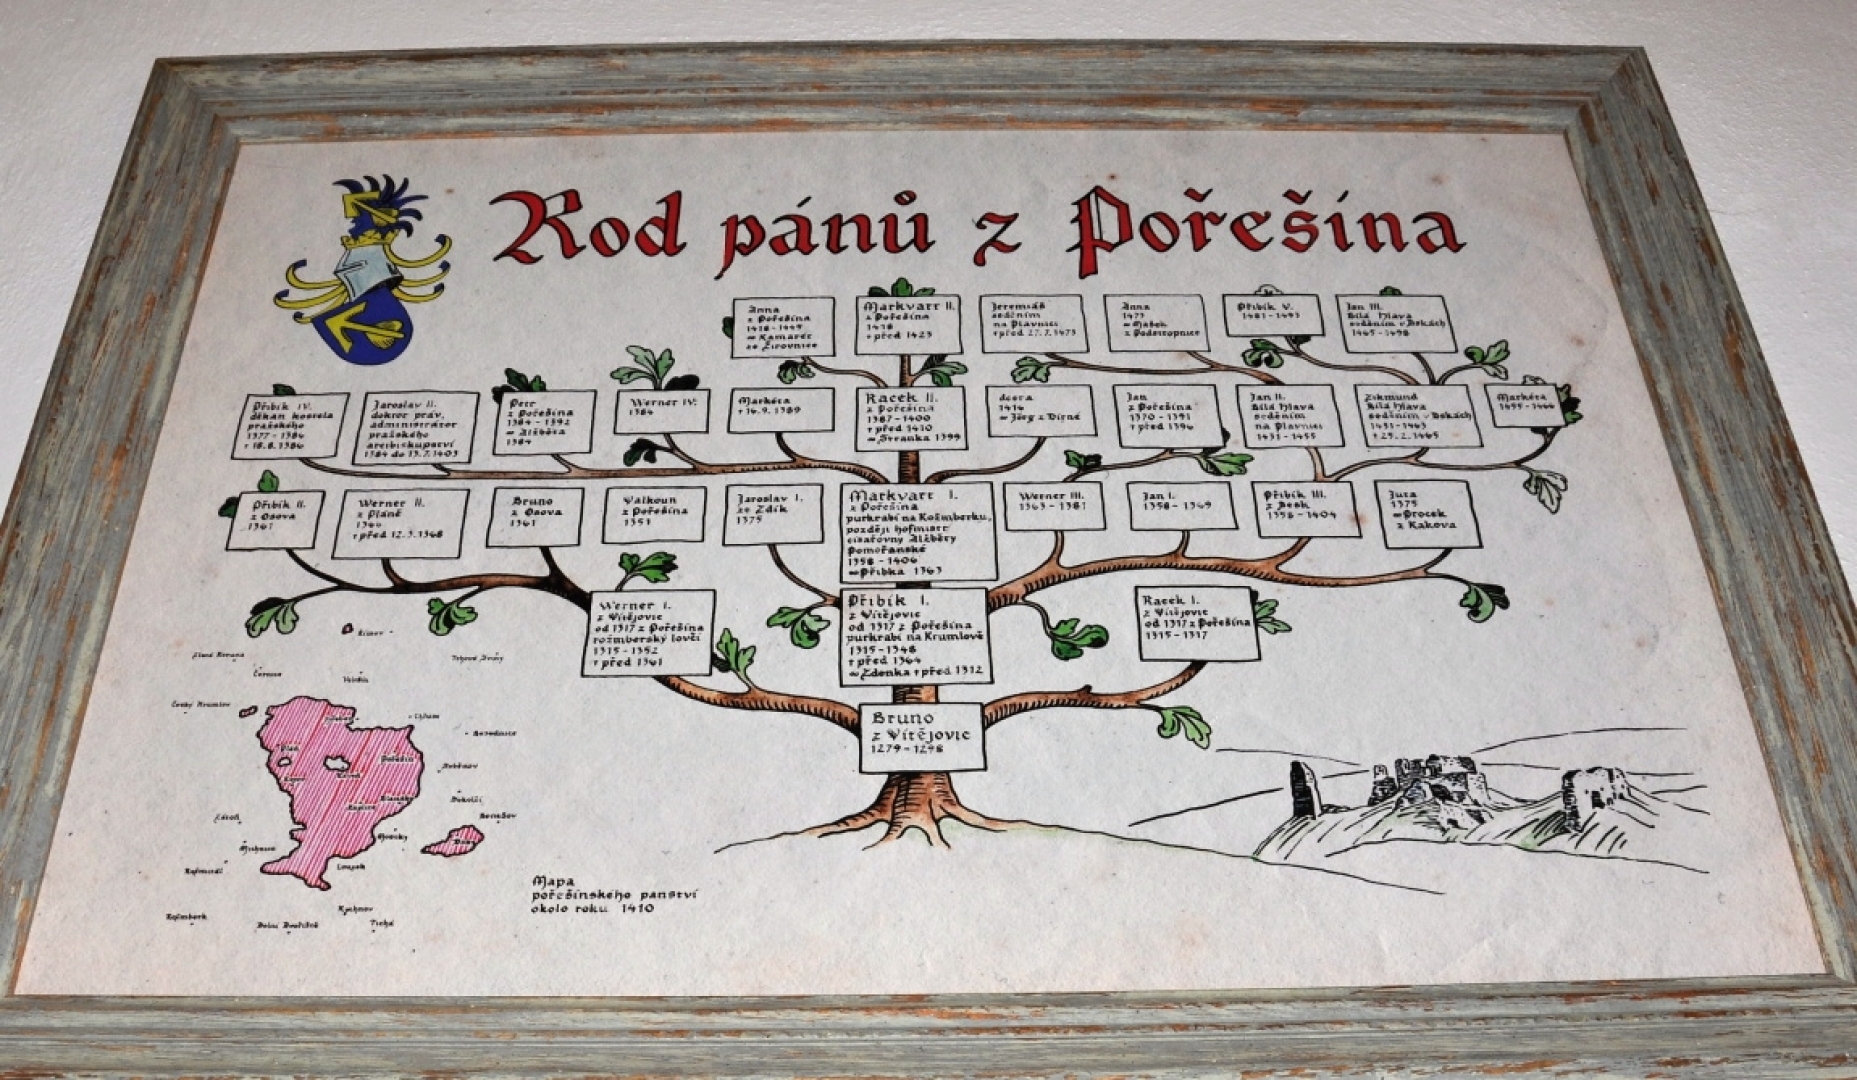 Rod pánů z Pořešína
Anna
z Pořešína
1418 - 1449
∞ Kamarét
ze Žirovnice
Markvart II.
z Pořešína
1418
† před 1423
Jeremiáš
seděním
na Plavnici
† před 27.7.1473
Anna
1473
∞ Mašek
z Podstropnice
Přibík V.
1481 - 1493
Jan III.
Bílá hlava
seděním v Bskách
1465 - 1498
Přibík IV.
děkan kostela
pražského
1377 - 1386
† 18.8.1386
Jaroslav II.
doktor práv,
administrátor
pražského
arcibiskupství
1384 do 13.7.1403
Petr
z Pořešína
1384 - 1392
∞ Alžběta
1384
Werner IV.
1384
Markéta
† 16.9.1389
Racek II.
z Pořešína
1387 - 1400
† před 1410
∞ Stranka 1399
dcera
1414
∞ Jörg z Dirné
Jan
z Pořešína
1370 - 1391
† před 1396
Jan II.
Bílá hlava
seděním
na Plavnici
1431 - 1455
Zikmund
Bílá hlava
seděním v Bskách
1431 - 1463
† 25.2.1465
Markéta
1455 - 1466
Přibík II.
z Osova
1361
Werner II.
z Pláně
1366
† před 12.3.1368
Bruno
z Osova
1361
Valkoun
z Pořešína
1351
Jaroslav I.
ze Zdík
1375
Markvart I.
z Pořešína
purkrabí na Kožmberku,
později hofmistr
císařovny Alžběty
Pomořanské
1358 - 1406
∞ Přibka 1363
Werner III.
1363 - 1381
Jan I.
1358 - 1369
Přibík III.
z Besk
1358 - 1404
Juta
1375
∞ Procek
z Kakova
Werner I.
z Vitějovic
od 1317 z Pořešína
rožmberský lovčí
1315 - 1352
† před 1361
Přibík I.
z Vitějovic
od 1317 z Pořešína
purkrabí na Krumlově
1315 - 1348
† před 1364
∞ Zdenka † před 1312
Racek I.
z Vitějovic
od 1317 z Pořešína
1315 - 1317
Bruno
z Vitějovic
1279 - 1298
Český Krumlov
Pořešín
Benešov
Rychnov
Dolní Dvořiště
Tichá
Mapa
pořešínského panství
okolo roku 1410